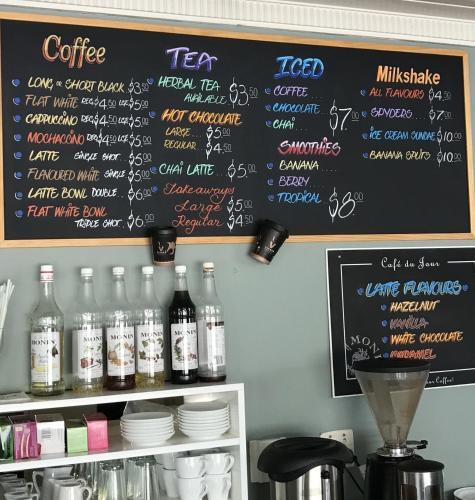 Coffee
LONG OR SHORT BLACK $3.50
FLAT WHITE REG $4.50 LGE $5.00
CAPPUCCINO REG $4.50 LGE $5.00
MOCHACCINO REG $4.50 LGE $5.00
LATTE SINGLE SHOT $5.00
FLAVOURED WHITE SINGLE $5.00
LATTE BOWL DOUBLE $6.00
FLAT WHITE BOWL
TRIPLE SHOT $6.00
TEA
HERBAL TEA
AVAILABLE $3.50
HOT CHOCOLATE
LARGE $5.00
REGULAR $4.50
CHAI LATTE $5.00
Takeaways
Large $5.00
Regular $4.50
ICED
COFFEE
CHOCOLATE $7.00
CHAI
SMOOTHIES
BANANA
BERRY
TROPICAL $8.00
Milkshake
ALL FLAVOURS $4.50
SPYDERS $7.00
ICE CREAM SUNDAE $10.00
BANANA SPLITS $10.00
Café du Jour
LATTE FLAVOURS
HAZELNUT
VANILLA
WHITE CHOCOLATE
MONIN
MONIN
MONIN
MONIN
MONIN